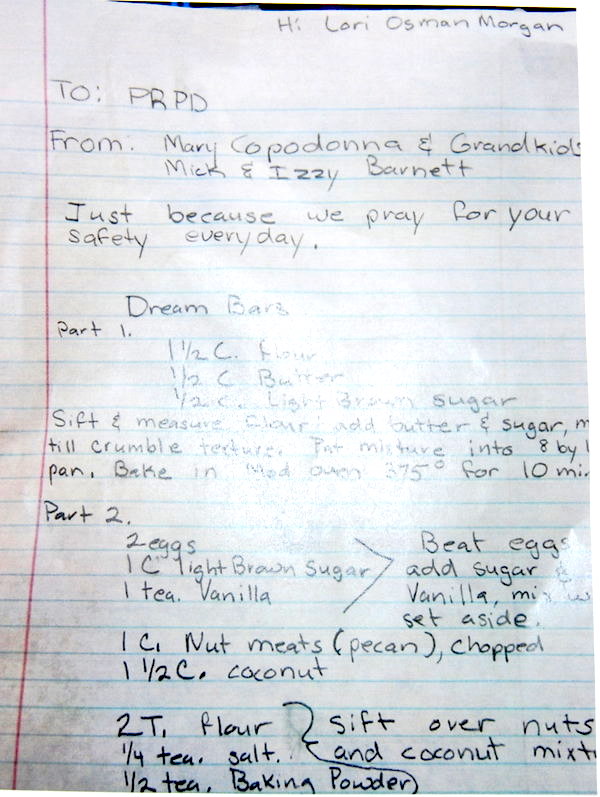 Hi Lori Osman Morgan
To: PRPD
From: Mary Copodonna & Grandkids
Mick & Izzy Barnett
Just because we pray for your
safety everyday.
Dream Bars
Part 1.
1 1/2 C. flour
1/2 C Butter
1/2 c. Light Brown sugar
Sift & measure flour; add butter & sugar, m
till crumble texture. Pat mixture into 8 by 1
pan. Bake in Mod oven 375° for 10 min
Part 2.
2 eggs
1 C light Brown Sugar
1 tea. Vanilla
Beat eggs
add sugar &
Vanilla, mix w
set aside.
1 C. Nut meats (pecan), chopped
1 1/2 C. coconut
2 T. flour
1/4 tea. salt.
1/2 tea. Baking Powder
sift over nuts
and coconut mixtu